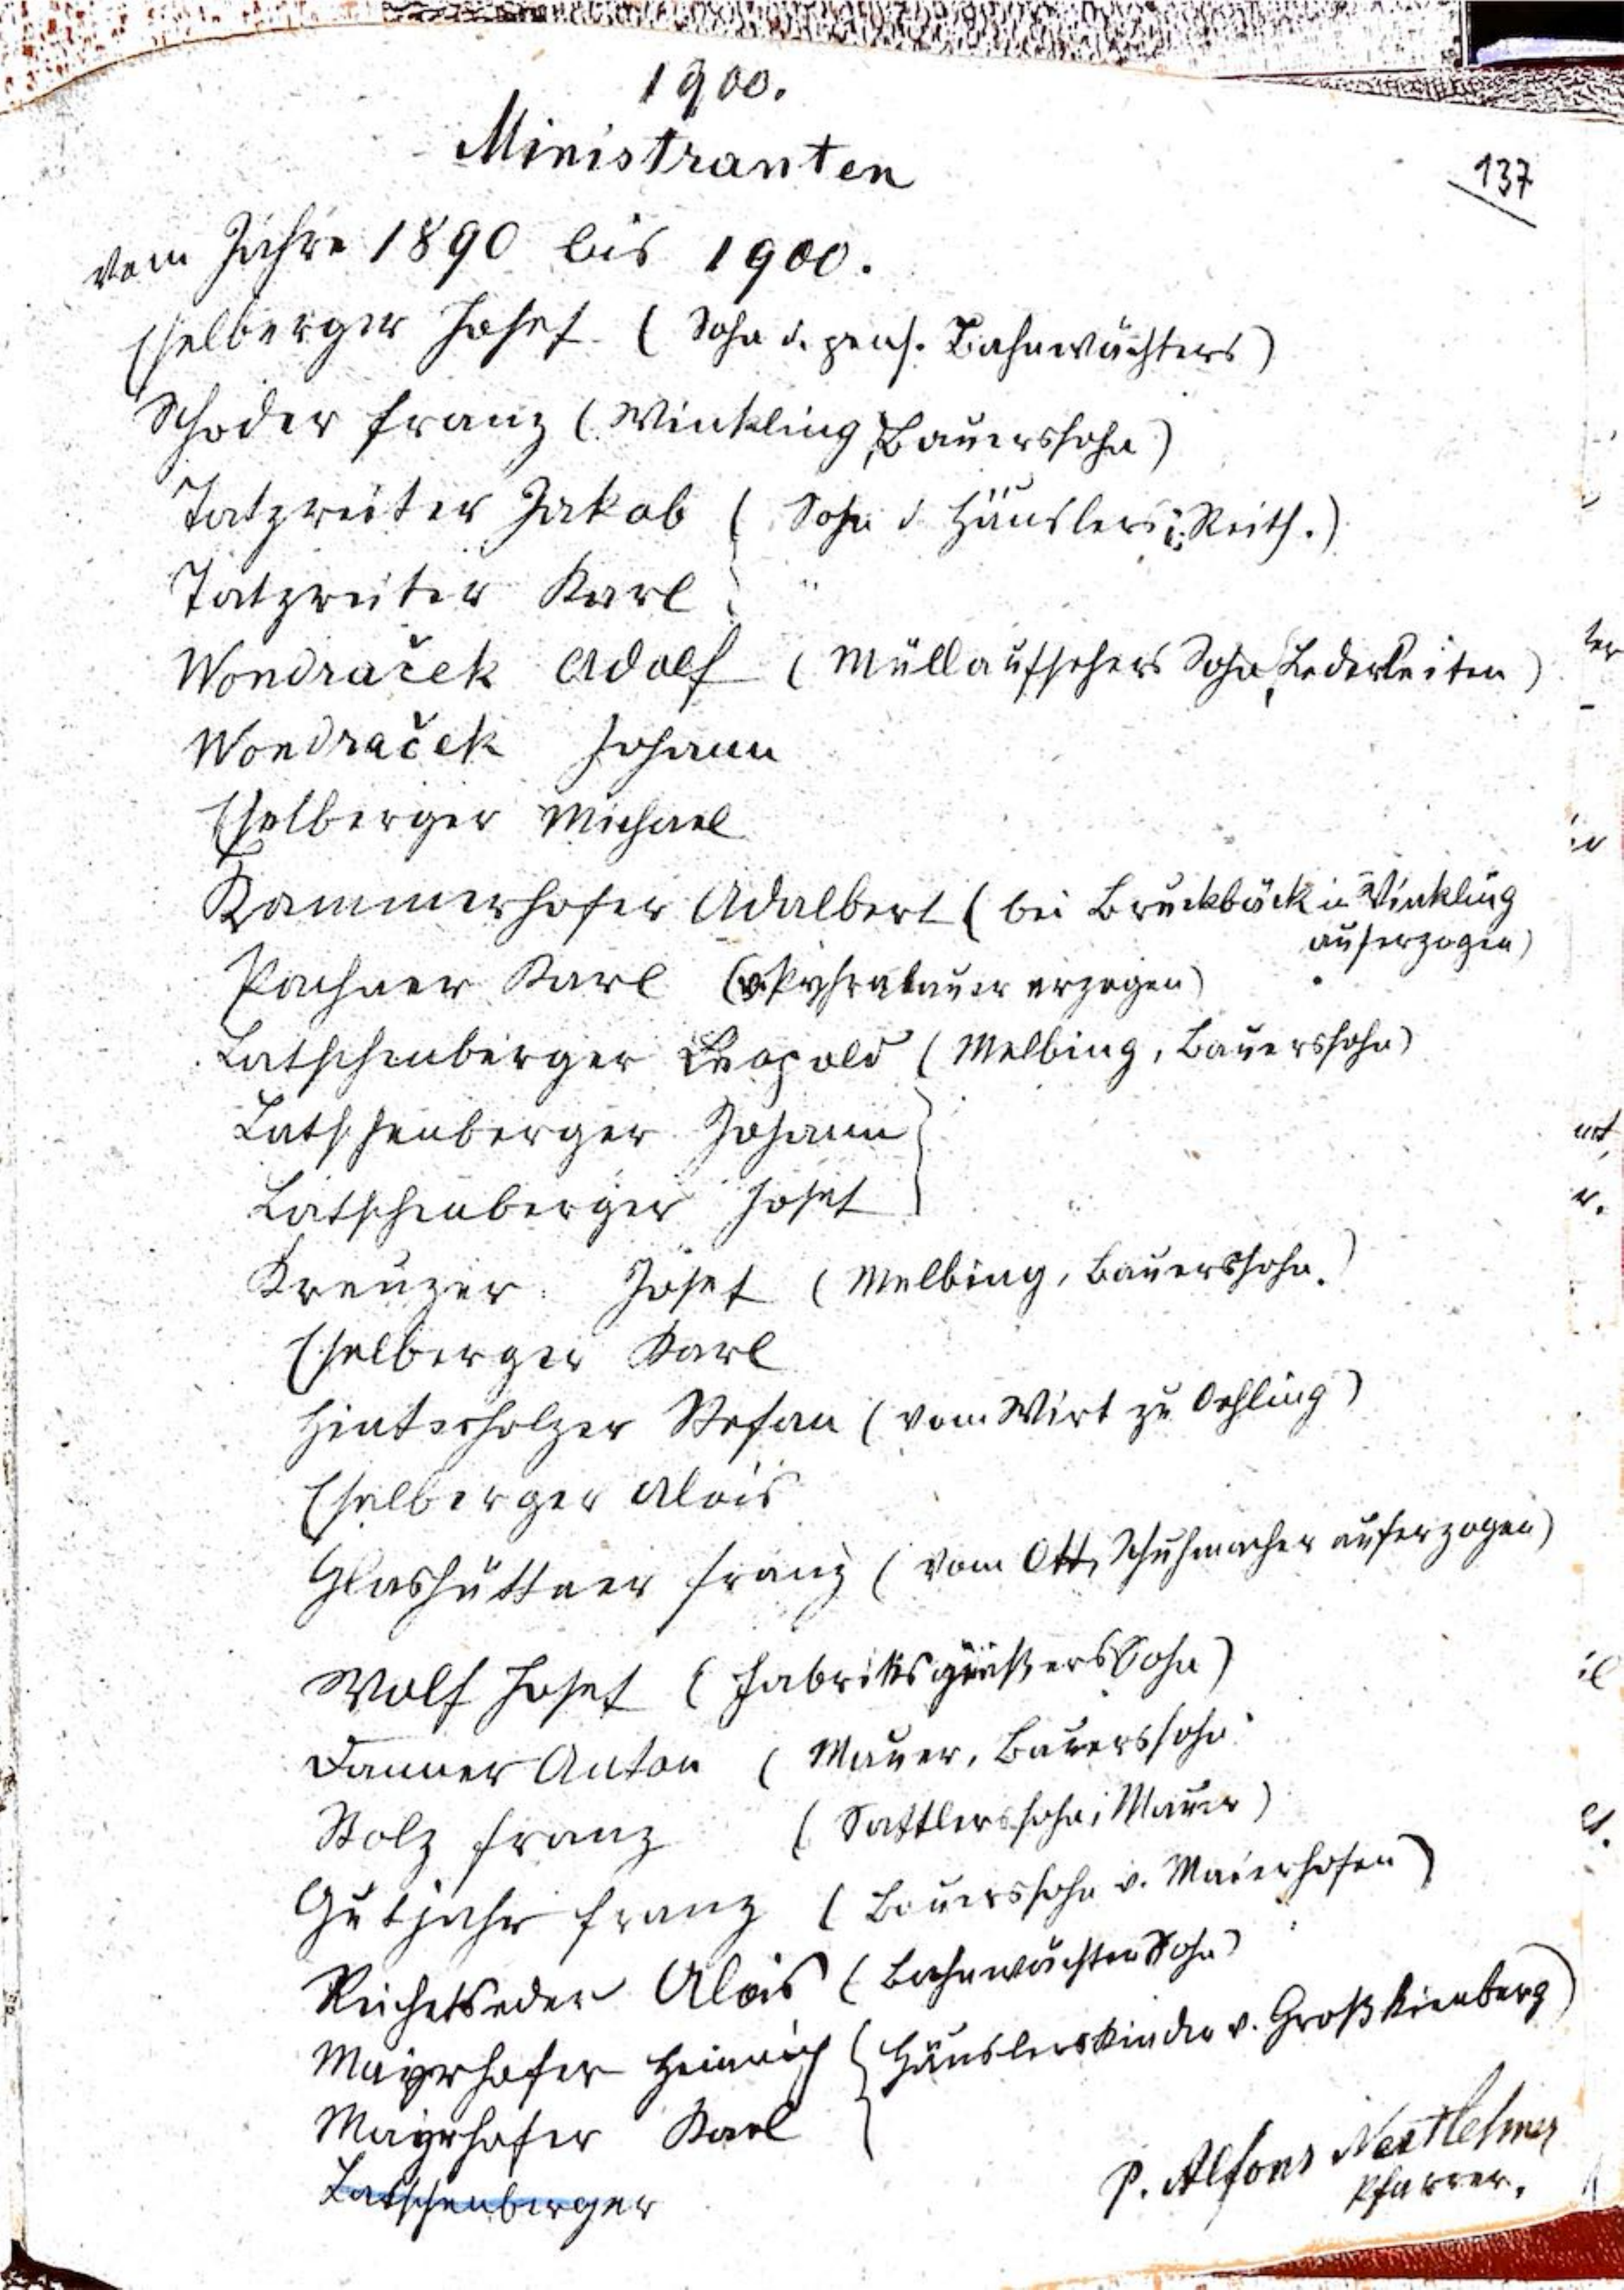 1900.
Ministranten
137
vom Jahre 1890 bis 1900.
Eselberger Josef (Sohn d. pens. Bahnwächters)
Schoder Franz (Winkling, Bauerssohn)
Tatzreiter Jakob (Sohn d Häuslers i. Reith.)
Tatzreiter Karl "
Wondraček Adolf (Müllaufsehers Sohn, Lederleiten)
Wondraček Johann
Eselberger Michael
Kammerhofer Adalbert (bei Bruckbäck in Winkling
auferzogen)
Pachner Karl (v. Pyhrabauer erzogen)
Latschenberger Leopold (Melbing, Bauerssohn)
Latschenberger Johann
Latschenberger Josef "
Kreuzer Josef (Melbing, Bauerssohn.)
Eselberger Karl
Hinterholzer Stefan (vom Wirt zu Oehling)
Eselberger Alois
Glashüttner Franz (vom Ott, Schuhmacher auferzogen)
Wolf Josef (Fabriksgießers Sohn)
Danner Anton (Mauer, Bauerssohn
Stolz Franz (Sattlerssohn i Mauer)
Gutjahr Franz (Bauerssohn v. Maierhofen)
Reichetseder Alois (Bahnwächters Sohn)
Mayrhofer Heinrich (Häuslerskinder v. Großkienberg)
Mayrhofer Karl
Latschenberger
P. Alfons
Pfarrer.